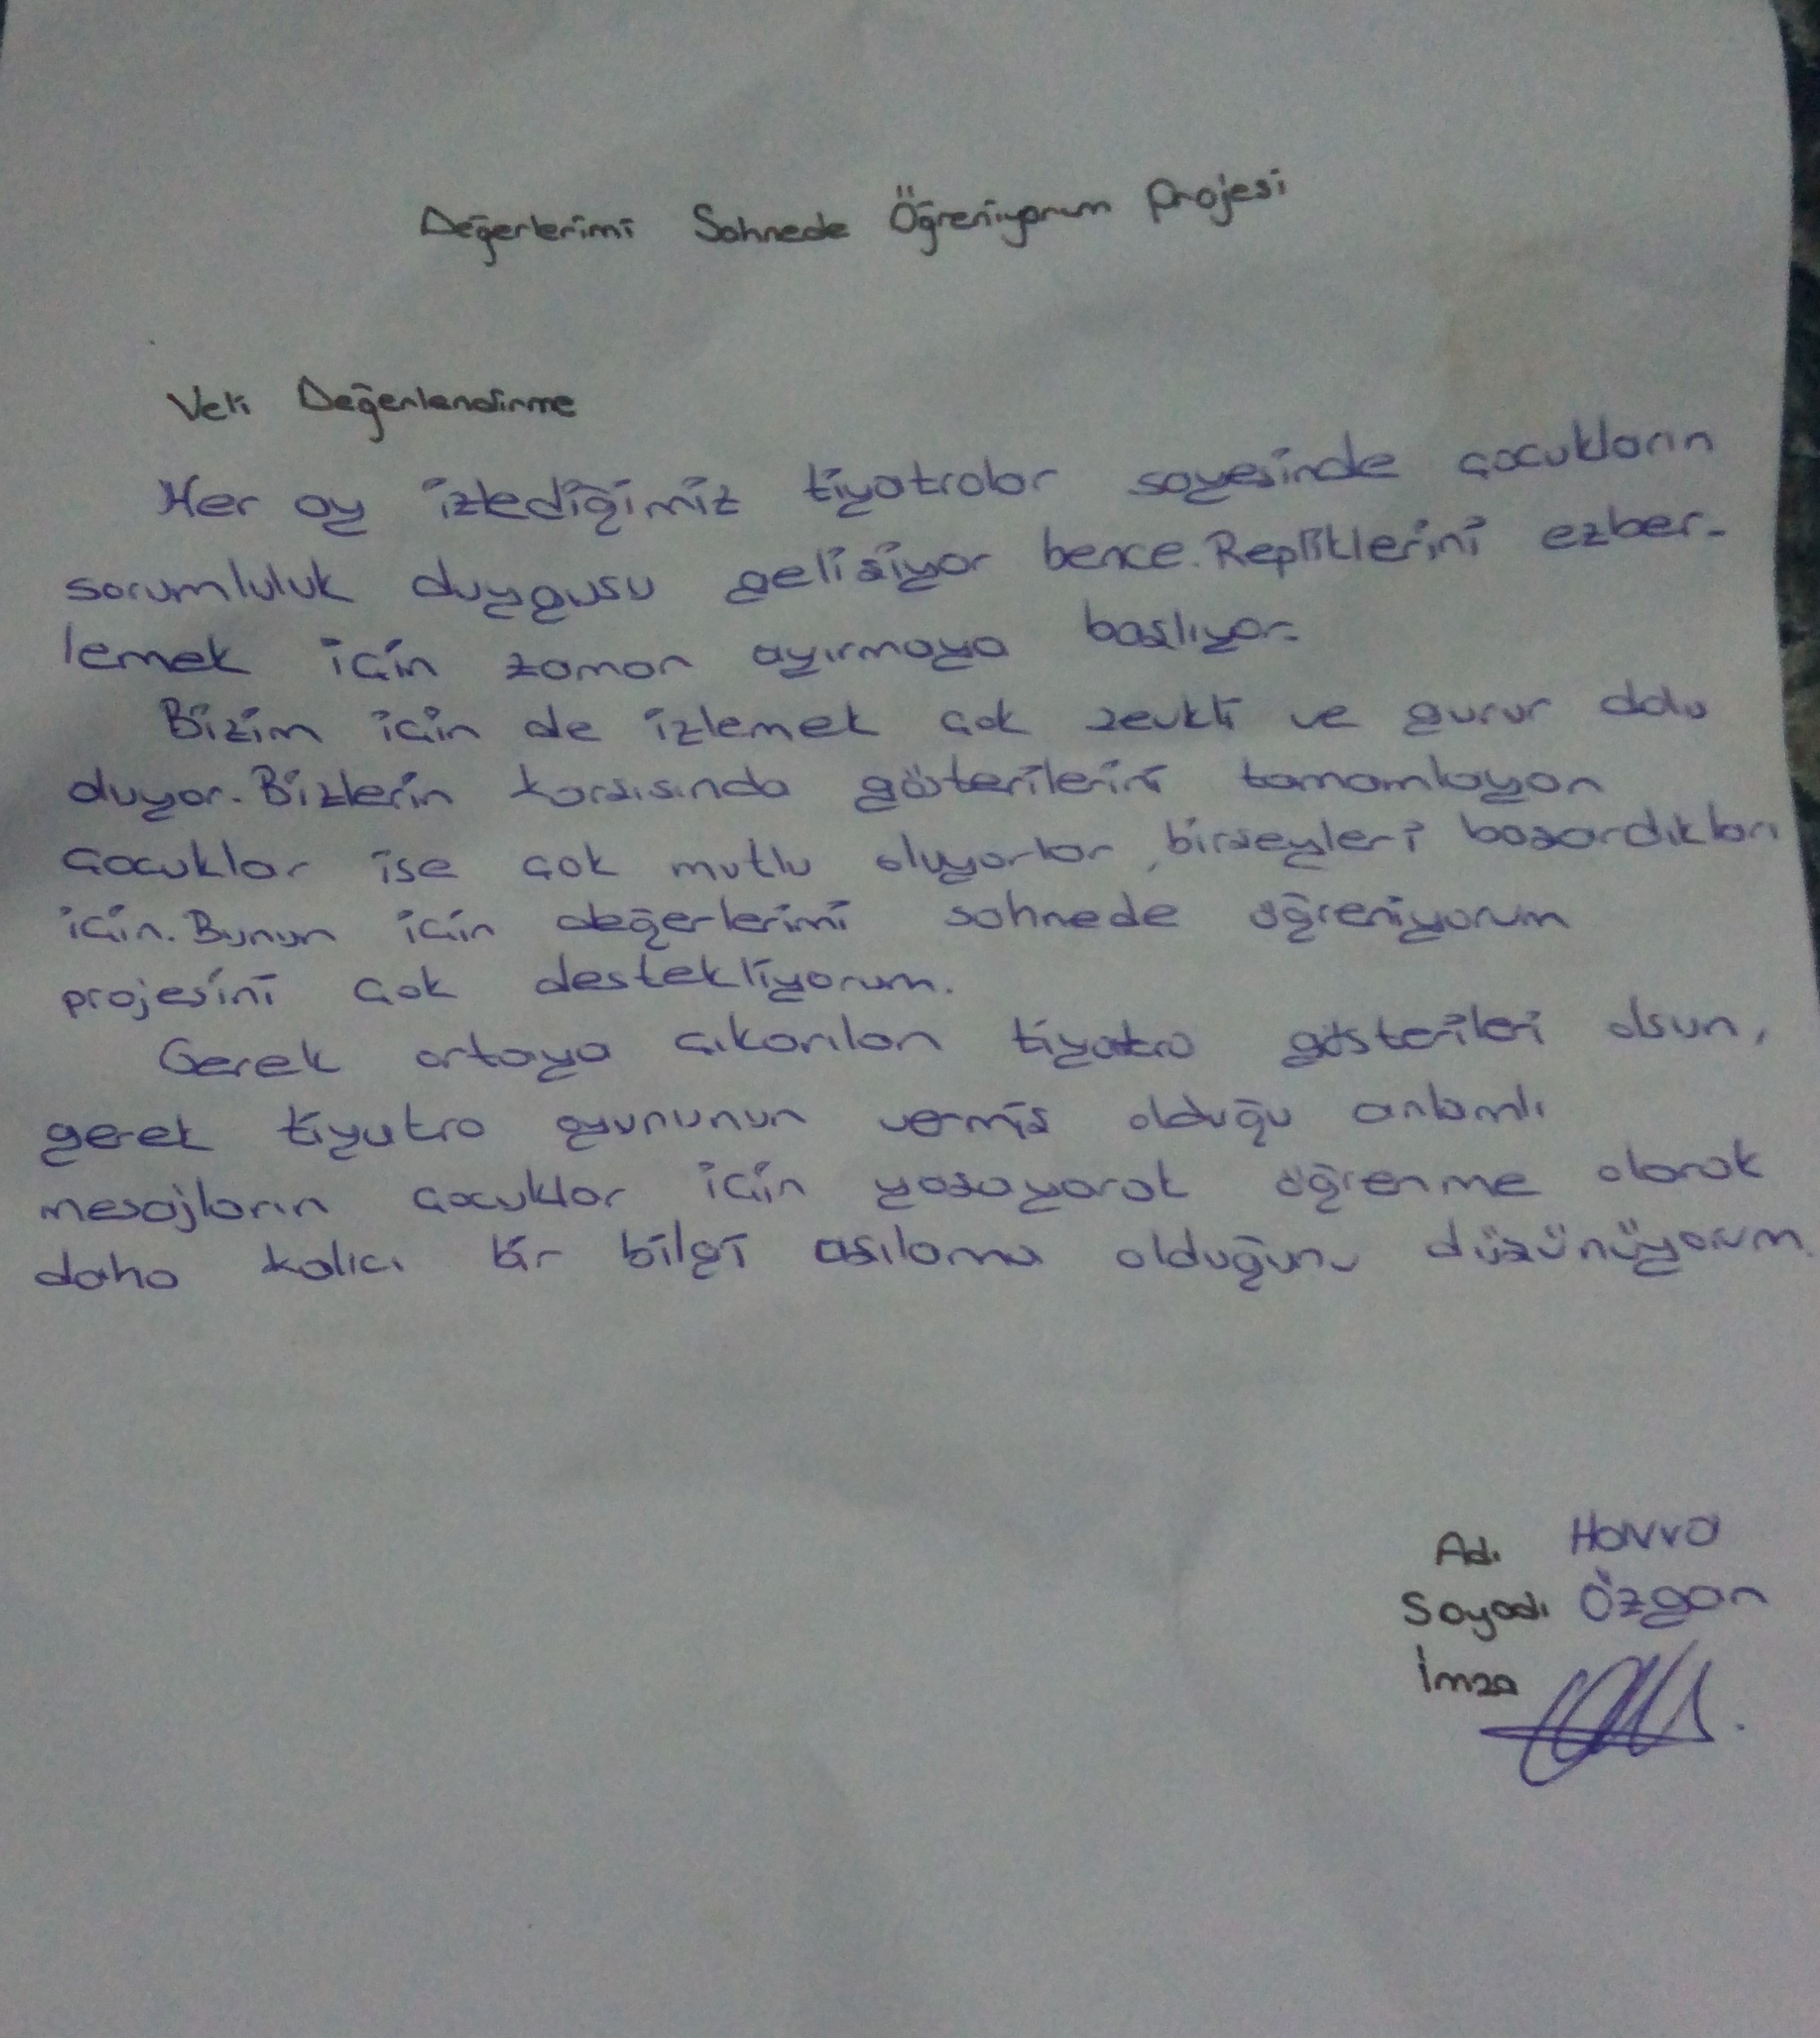 Değerlerimi Sahnede Öğreniyorum Projesi
Veli Değerlendirme
Her ay izlediğimiz tiyatrolar sayesinde çocukların
sorumluluk duygusu gelişiyor bence. Repliklerini ezber-
lemek için zaman ayırmaya başlıyor.
Bizim için de izlemek çok zevkli ve gurur dolu
duyor. Bizlerin karşısında gösterilerini tamamlayan
çocuklar ise çok mutlu oluyorlar, birşeyleri başardıkları
için. Bunun için değerlerimi sahnede öğreniyorum
projesini çok destekliyorum.
Gerek ortaya çıkarılan tiyatro gösterileri olsun,
gerek tiyatro oyununun vermiş olduğu anlamlı
mesajların çocuklar için yaşayarak öğrenme olarak
daha kalıcı bir bilgi aşılama olduğunu düşünüyorum.
Adı Havva
Soyadı Özgan
İmza